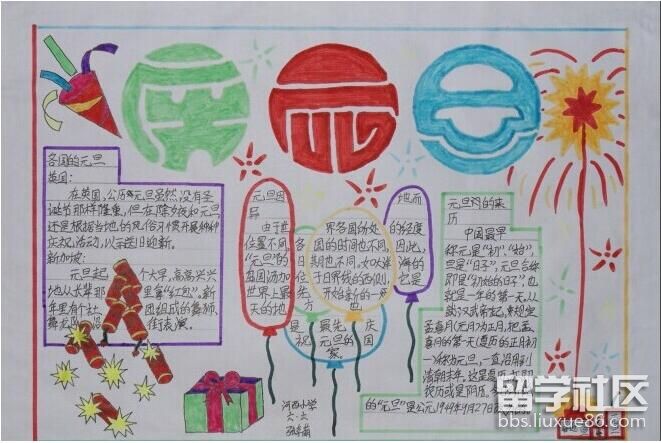 庆元旦
各国的元旦
英国:
在英国,公历元旦虽然没有圣
诞节那样隆重,但在除夕夜和元旦
还是根据当地的风俗习惯开展种种
庆祝活动,以示送旧迎新。
新加坡:
元旦起个大早,高高兴兴
地从长辈那里拿“红包”。新
年里有个社团组成的舞狮、
舞龙队沿街表演。
元旦因地而
异
由于世界各国所处的经度
位置不同,各国的时间也不同,因此,
“元旦”的日期也不同,如大洋海的
岛国汤加位于日界线的西侧,它是
世界上最先开始新的一
天的地方也
是最先庆
祝元旦的国
家。
元旦的来
历
中国最早
称元是“初”、“始”
旦是“日子”,元旦合称
即是“初始的日子”,也
就是一年的第一天。从
汉武帝起,来规定
孟喜月(元月)为正月,把孟
喜月的第一天(夏历的正月初
一)称为元旦,一直沿用到
清朝末年。这是夏历,亦即
农历或是阴历。
的“元旦”是公元1949年9月27日
河西小学
六·六
留学社区
bbs.liuxue86.com